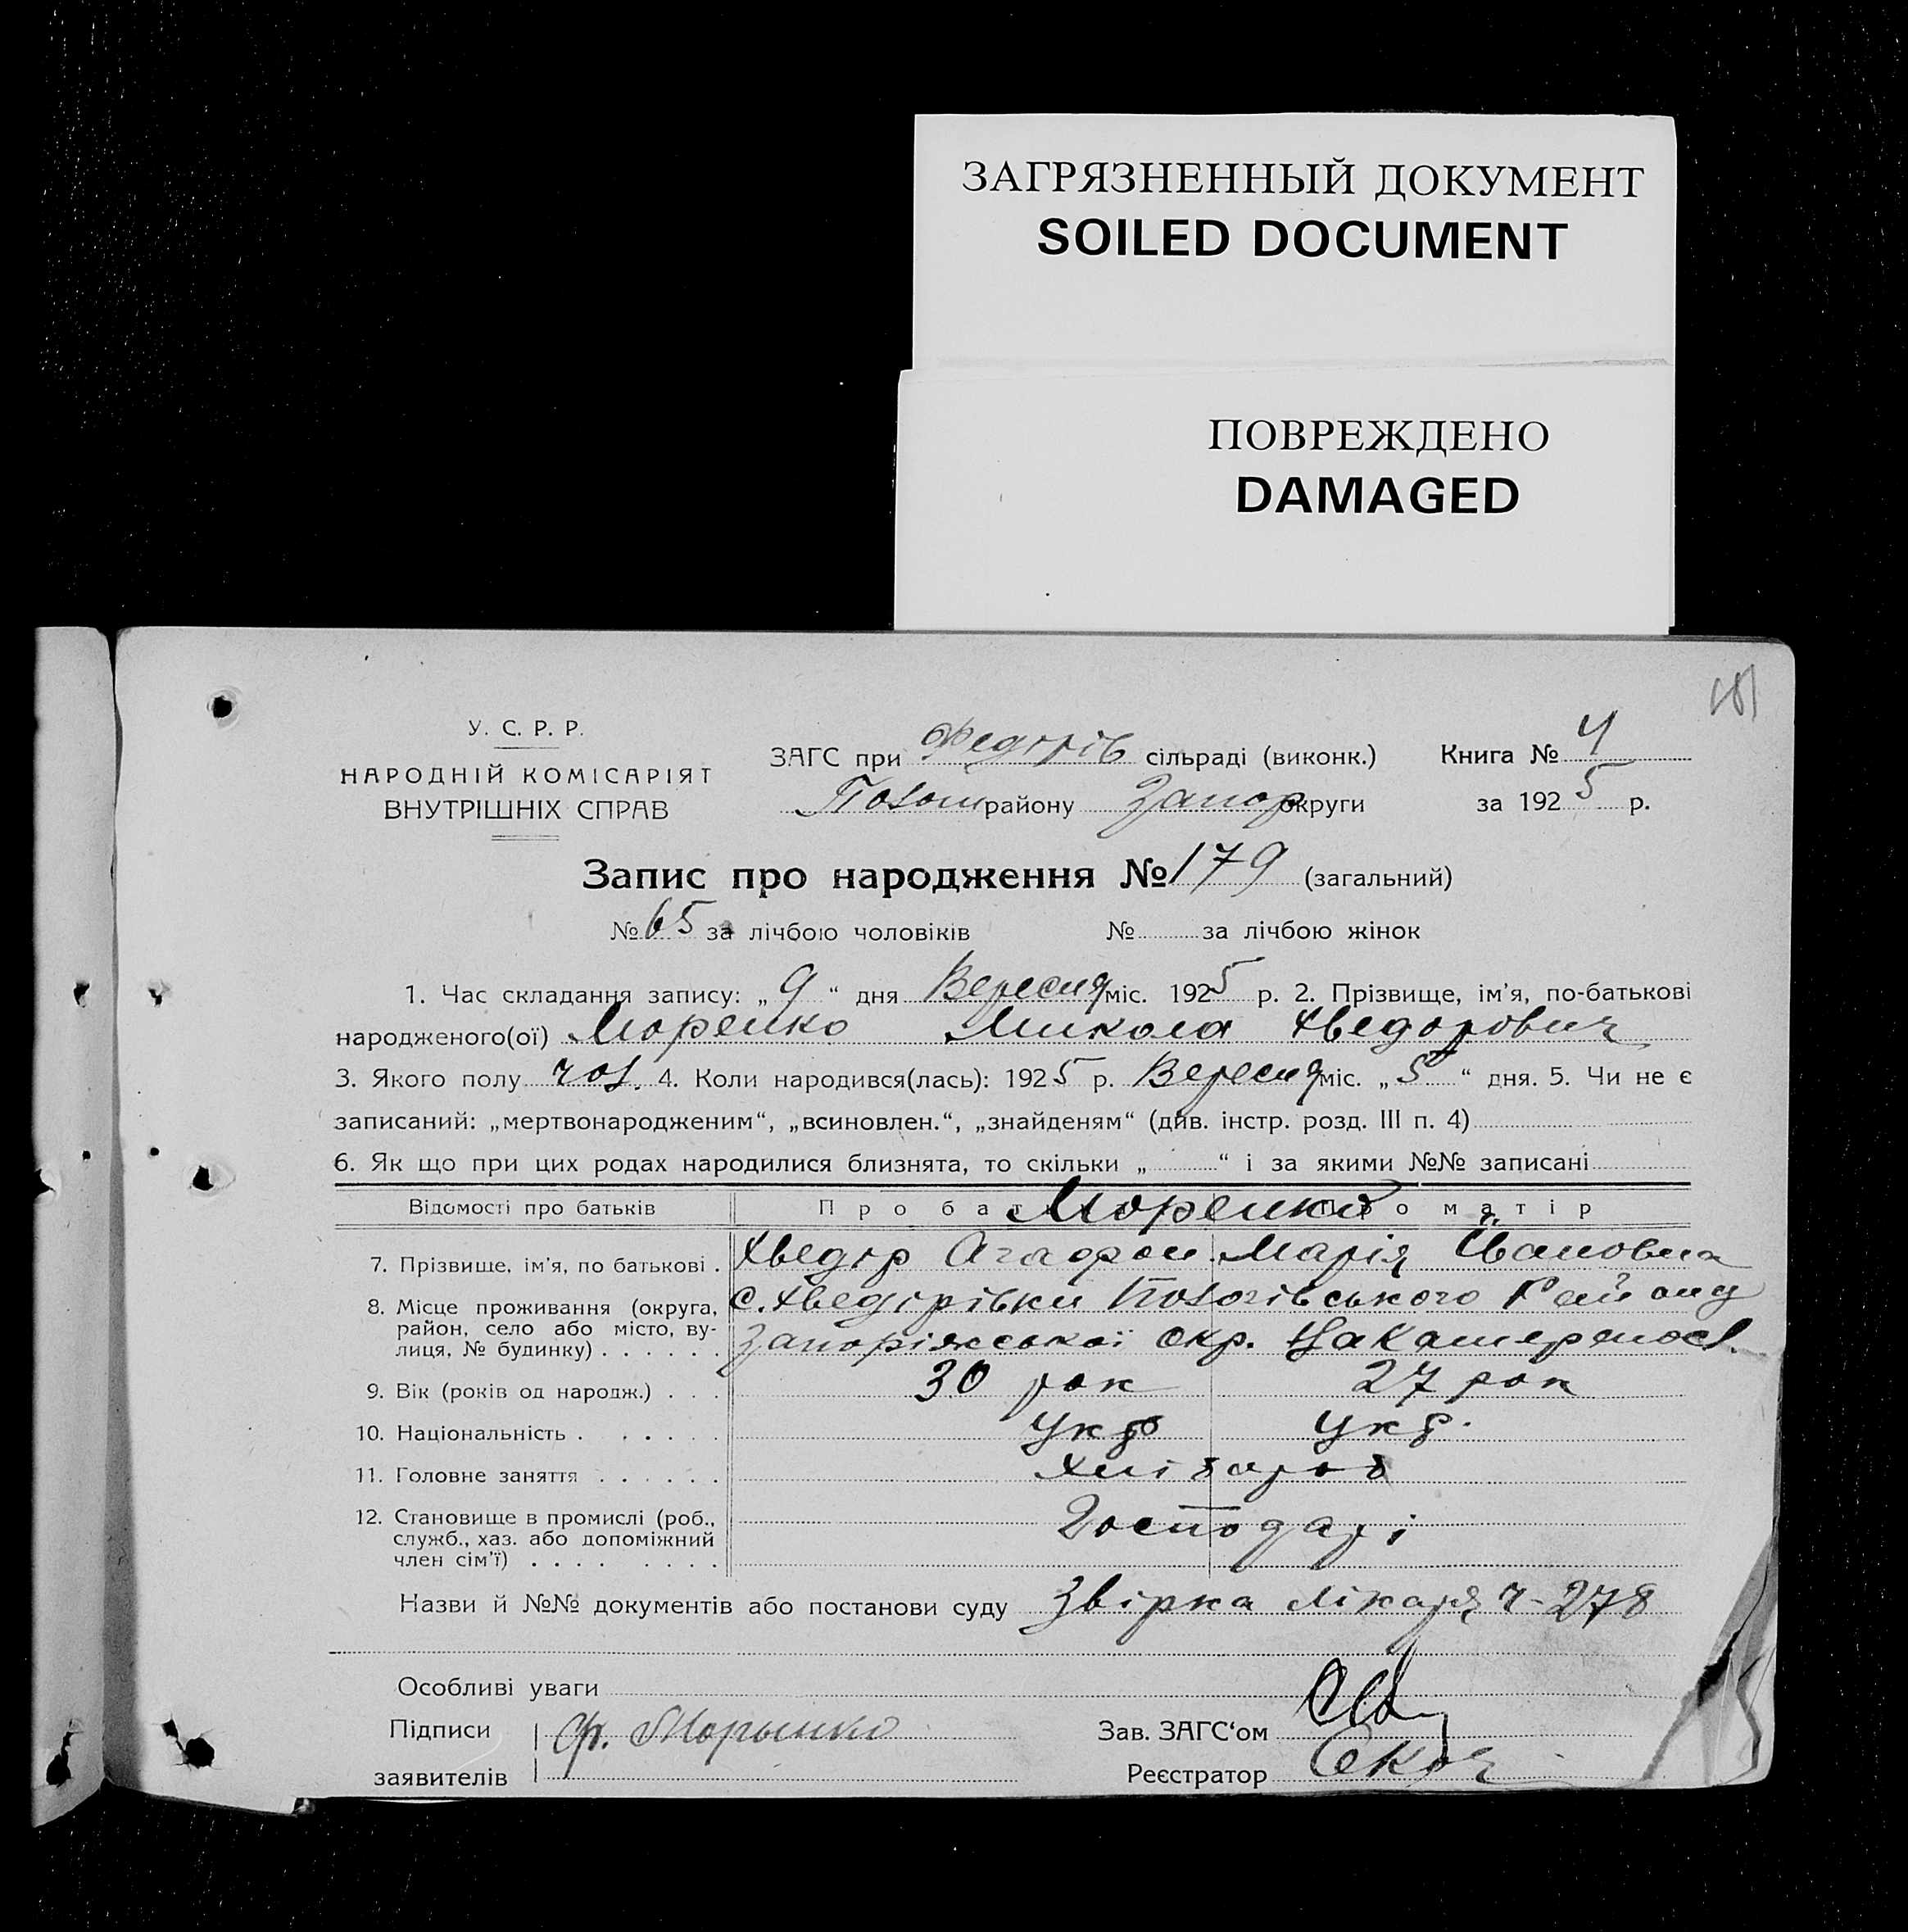 ЗАГРЯЗНЕННЫЙ ДОКУМЕНТ
SOILED DOCUMENT
ПОВРЕЖДЕНО
DAMAGED
У. С. Р. Р.
НАРОДНІЙ КОМІСАРІЯТ
ВНУТРІШНІХ СПРАВ
ЗАГС при Федорів сільраді (виконк.) Книга № 4
району Запор округи за 1925 р.
Запис про народження № 179 (загальний)
№ 65 за лічбою чоловіків № за лічбою жінок
1. Час складання запису: „9“ дня Вересня міс. 1925 р. 2. Прізвище, ім’я, по-батькові
народженого(ої) Моренко Микола Хведорович
3. Якого полу чол. 4. Коли народився(лась): 1925 р. Вересня міс. „5“ дня. 5. Чи не є
записаний: „мертвонародженим“, „всиновлен.“, „знайденям“ (див. інстр. розд. III п. 4)
6. Як що при цих родах народилися близнята, то скільки „ “ і за якими №№ записані
Відомості про батьків Про бат Моренко о матір
7. Прізвище, ім’я, по батькові . Хведір Агафон. Марія Івановна
8. Місце проживання (округа, с. Хведірівки Пологівського Району
район, село або місто, ву-
лиця, № будинку) . . . . . . Запоріжської окр.
9. Вік (років од народж.) . . . 30 рок 27 рок
10. Національність . . . . . . Укр Укр.
11. Головне заняття . . . . . . Хлібороб
12. Становище в промислі (роб., Господарі
служб., хаз. або допоміжний
член сім’ї) . . . . . . . .
Назви й №№ документів або постанови суду Звірка лікаря ч-278
Особливі уваги
Підписи Ф. Морынко Зав. ЗАГС‘ом
заявителів Реєстратор